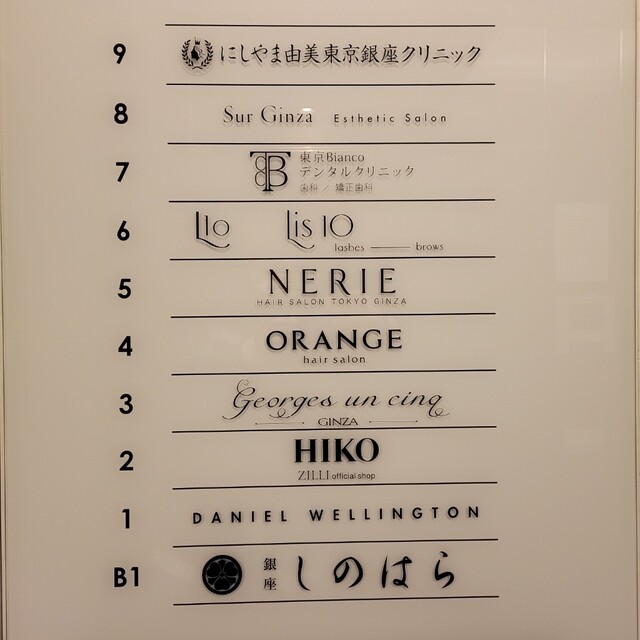 9 にしやま由美東京銀座クリニック
8 Sur Ginza Esthetic Salon
7 TB 東京Bianco
デンタルクリニック
歯科 / 矯正歯科
6 L10 Lis 10
lashes brows
5 NERIE
HAIR SALON TOKYO GINZA
4 ORANGE
hair salon
3 Georges un cinq
GINZA
2 HIKO
ZILLI official shop
1 DANIEL WELLINGTON
B1 銀座 しのはら